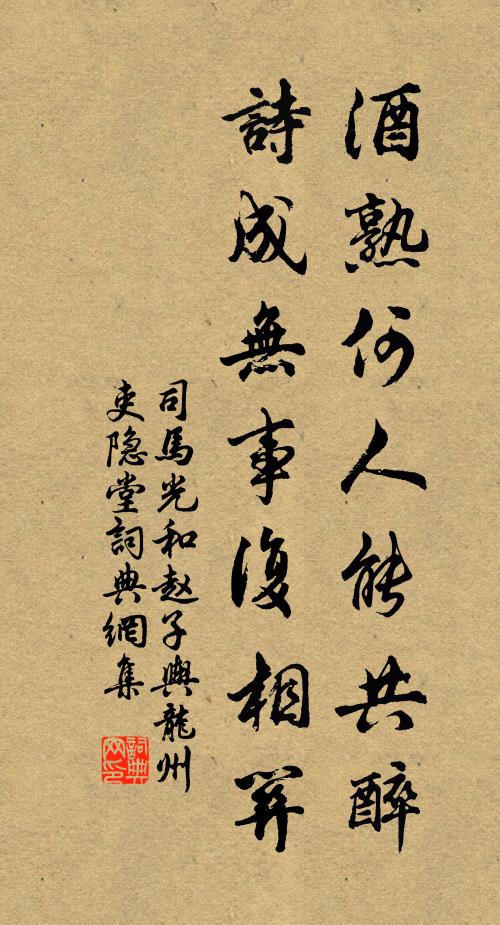 酒熟何人能共醉
詩成無事復相關
司馬光和赵子輿龍州
吏隐堂詞典網集
詞典
网印